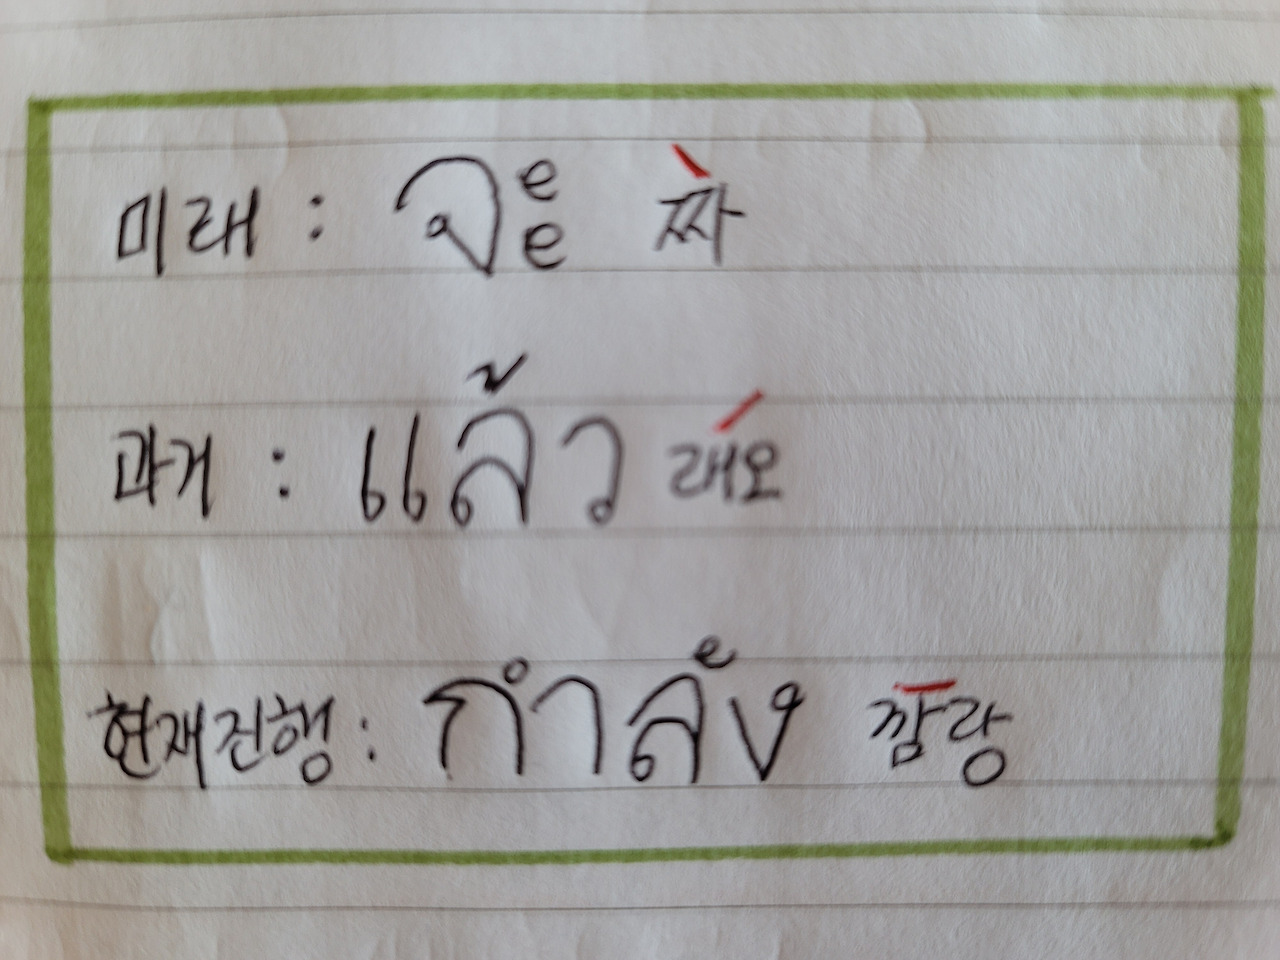 미래 : จะ 짜
과거 : แล้ว 래오
현재진행 : กำลัง 깜랑